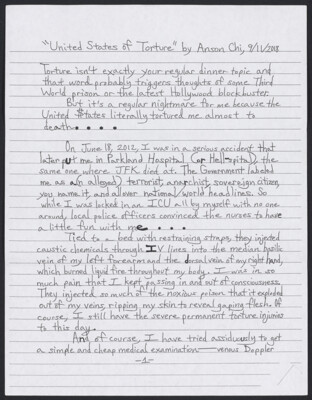 "United States of Torture" by Anson Chi, 9/11/2018
Torture isn't exactly your regular dinner topic and
that word probably triggers thoughts of some Third
World prison or the latest Hollywood blockbuster.
But it's a regular nightmare for me because the
United $tates literally tortured me almost to
death....
On June 18, 2012, I was in a serious accident that
later put me in Parkland Hospital (or Hellspital), the
same one where JFK died at. The Government labeled
me as an (alleged) terrorist, anarchist, sovereign citizen,
you name it, and all over national/world headlines. So
while I was locked in an ICU all by myself with no one
around, local police officers convinced the nurses to have
a little fun with me....
Tied to a bed with restraining straps, they injected
caustic chemicals through IV lines into the median basilic
vein of my left forearm and the dorsal vein of my right hand,
which burned liquid fire throughout my body. I was in so
much pain that I kept passing in and out of consciousness.
They injected so much of the noxious poison that it exploded
out of my veins, ripping my skin to reveal gaping flesh. Of
course, I still have the severe permanent torture injuries
to this day.
And of course, I have tried assiduously to get
a simple and cheap medical examination—venous Doppler
-1-